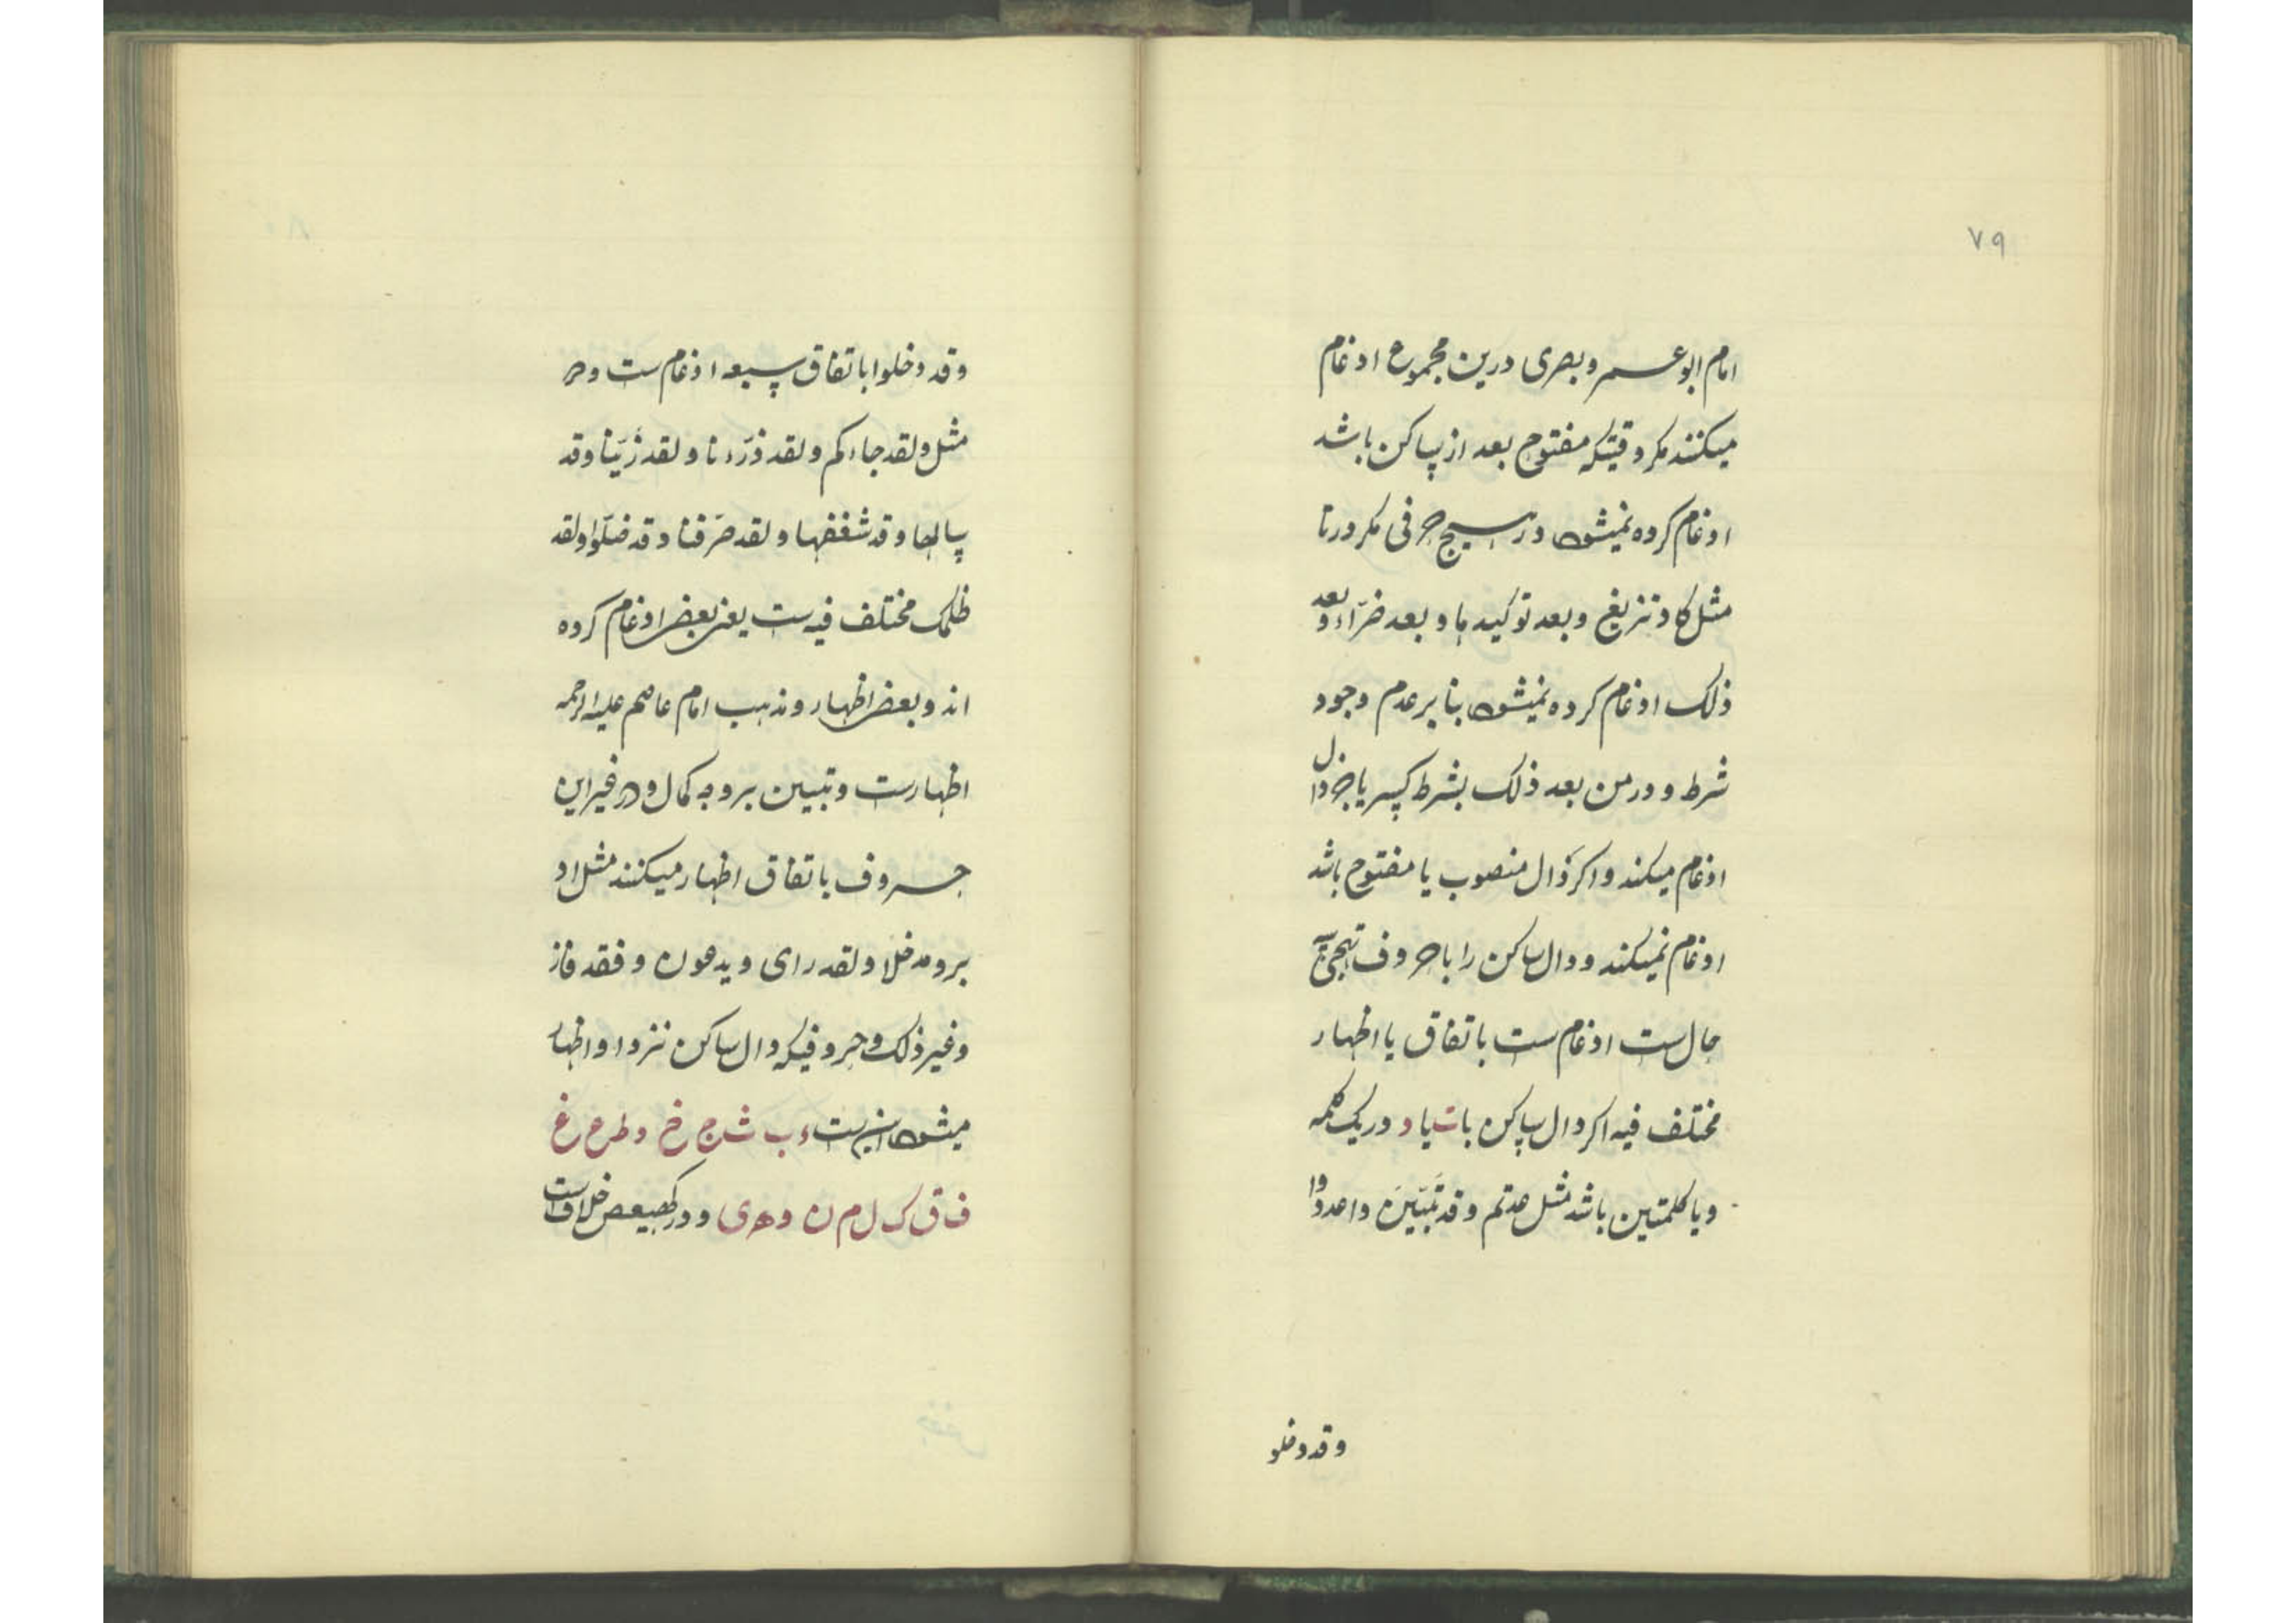 ٧٩
امام ابو عمرو بصری درین مجموع ادغام
میکنند مکر وقتیکه مفتوح بعد از ساکن باشد
ادغام کرده نمیشود در هیچ حرفی مکر در تا
مثل کاد تزیغ و بعد توکیدها و بعد ضرّاء و بعد
ذلک ادغام کرده نمیشود بنا بر عدم وجود
شرط و در من بعد ذلک بشرط کسر یا جر دال
ادغام میکند و اکر دال منصوب یا مفتوح باشد
ادغام نمیکند و دال ساکن را با حروف تهجی
حال ست ادغام ست باتفاق یا اظهار
مختلف فیه اکر دال ساکن با ت یا د در یک کلمه
و یا کلمتین باشد مثل عدتم و قد تَّبَیّنَ و اعدوا
وقد دخلو
وقد دخلوا باتفاق سبعه ادغام ست و در
مثل ولقد جاءکم ولقد ذرءنا ولقد زیّنا وقد
سالها وقد شغفها ولقد صرفنا وقد ضلّوا ولقد
ظلمک مختلف فیه ست یعنی بعض ادغام کرده
اند و بعض اظهار و مذهب امام عاصم علیه الرحمه
اظهارست و تبیین بر وجه کمال و در غیر این
حروف باتفاق اظهار میکنند مثل اد
بر و مدخلا ولقد رای و یدعون و فقد فاز
و غیر ذلک و حروفیکه دال ساکن نزد او اظهار
میشود این ست ء ب ث ج خ د ط ر ح غ
ف ق ک ل م ن و ه ی و در کهیعص خلاف ست